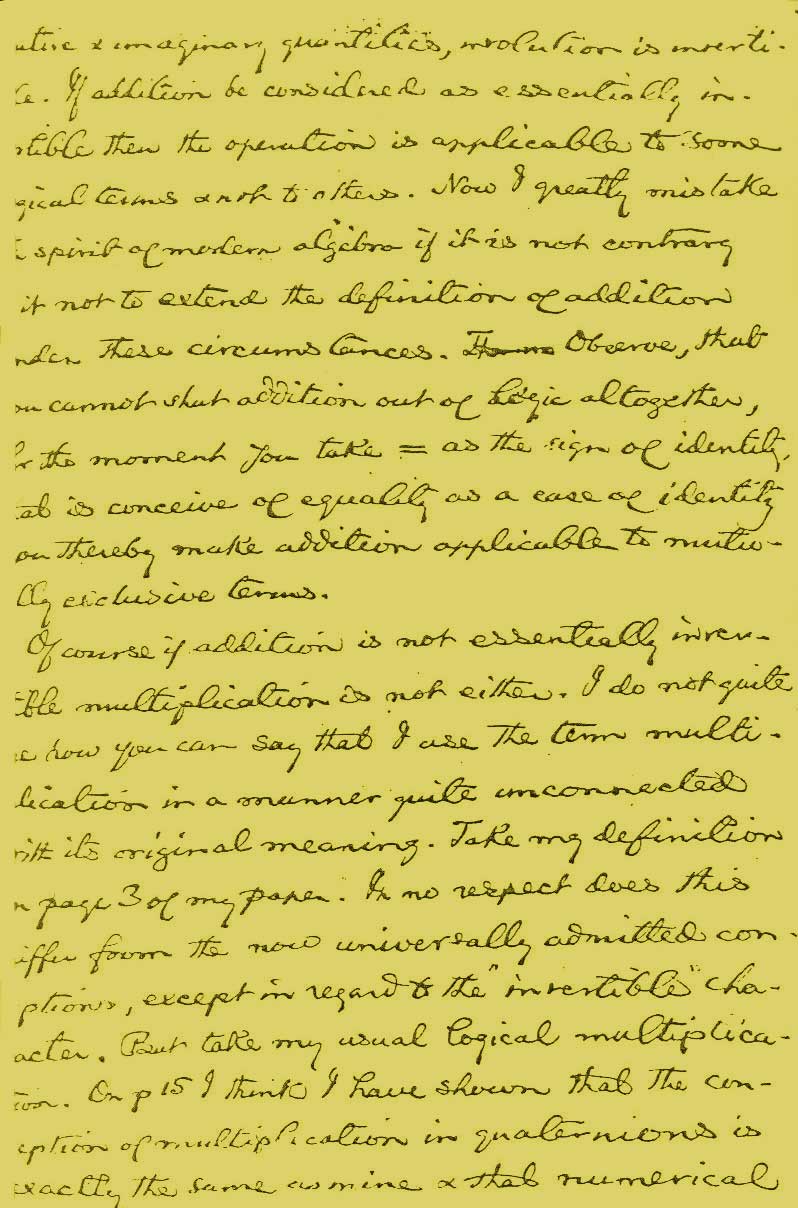 ative & imaginary quantities, involution is inverti-
le. If addition be considered as essentially in-
rtible then the operation is applicable to some
gical terms & not to others. Now I greatly mistake
e spirit of modern algebra if it is not contrary
it not to extend the definition of addition
nder these circumstances. Observe, that
ou cannot shut addition out of logic altogether,
or the moment you take = as the sign of identity,
tat is conceive of equality as a case of identity
ou thereby make addition applicable to mutu-
lly exclusive terms.
Of course if addition is not essentially inver-
tible multiplication is not either. I do not quite
e how you can say that I use the term multi-
lication in a manner quite unconnected
with its original meaning. Take my definition
n page 3 of my paper. In no respect does this
iffer from the now universally admitted con-
ptions, except in regard to the "invertible" cha-
acter. But take my usual logical multiplica-
tion. On p 15 I think I have shown that the con-
eption of multiplication in quaternions is
exactly the same as mine & that numerical